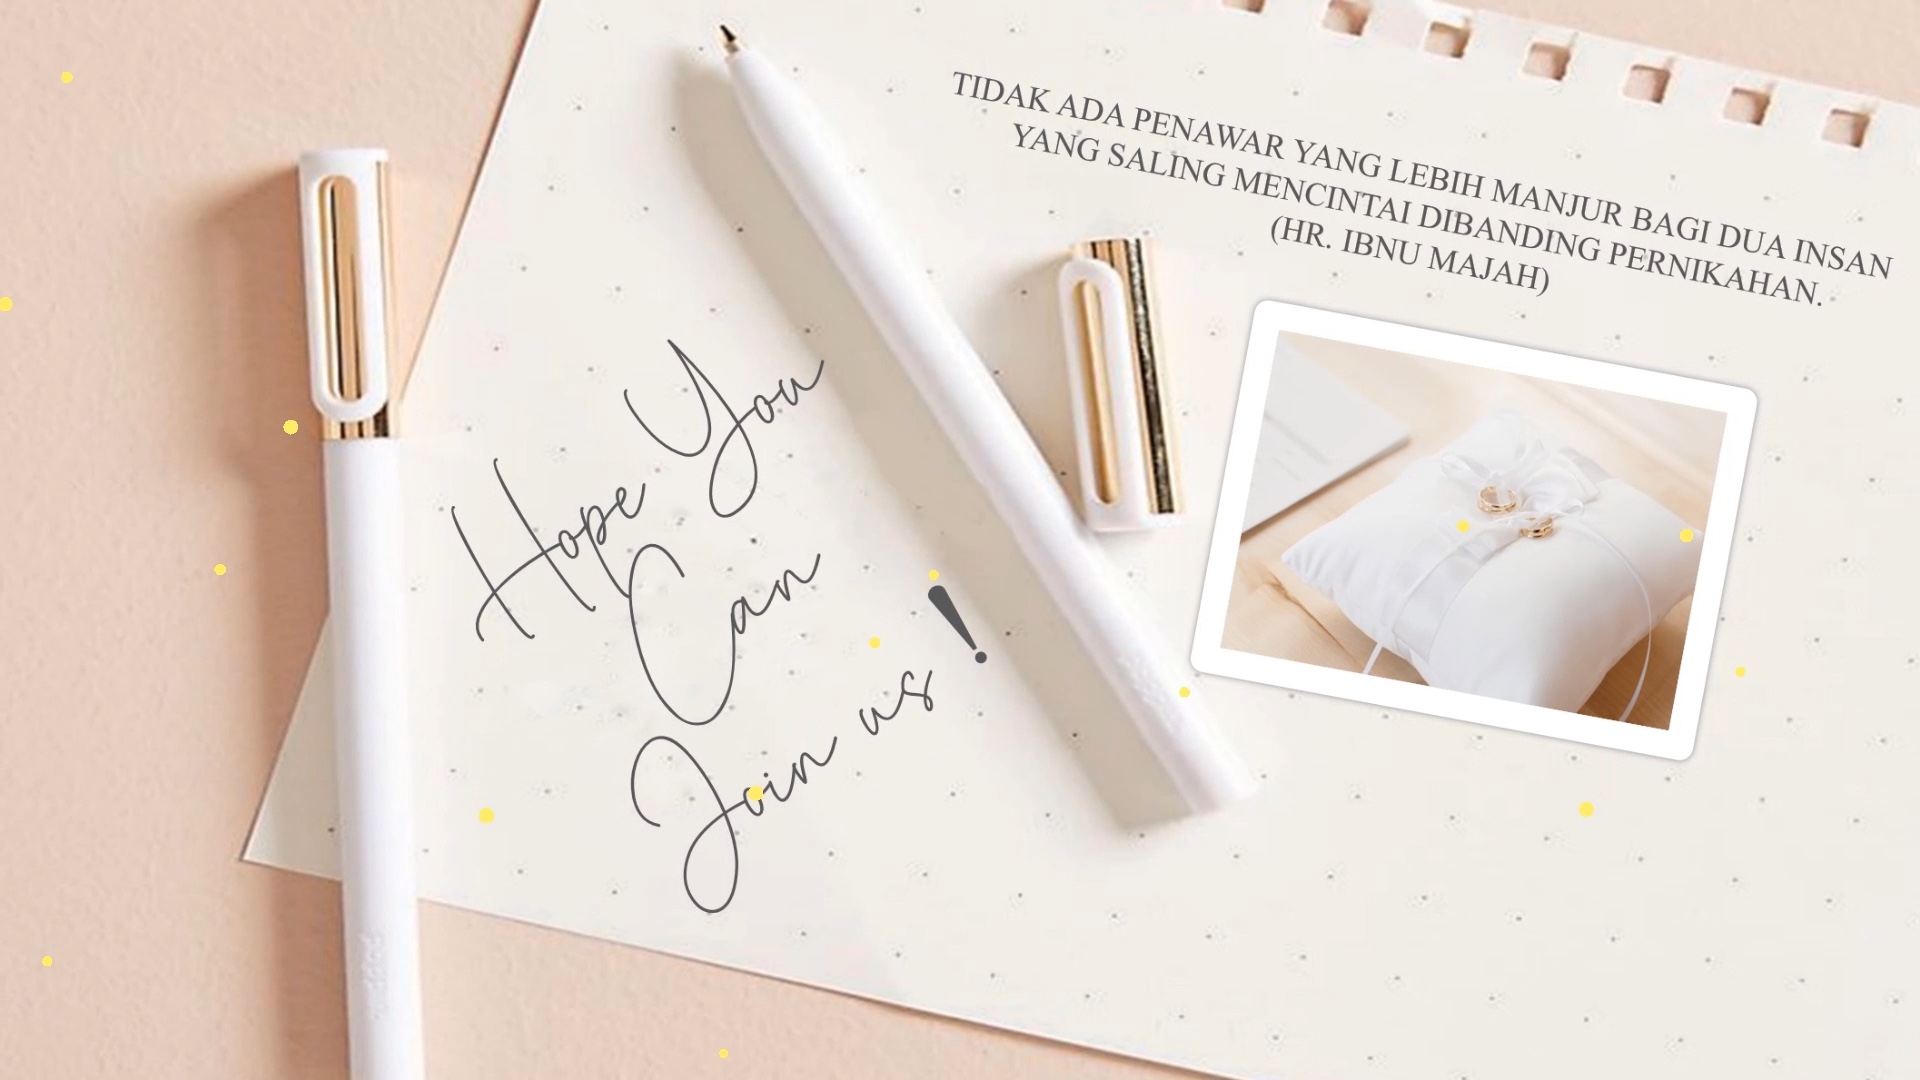 TIDAK ADA PENAWAR YANG LEBIH MANJUR BAGI DUA INSAN
YANG SALING MENCINTAI DIBANDING PERNIKAHAN.
(HR. IBNU MAJAH)
Hope You
Can
Join us !